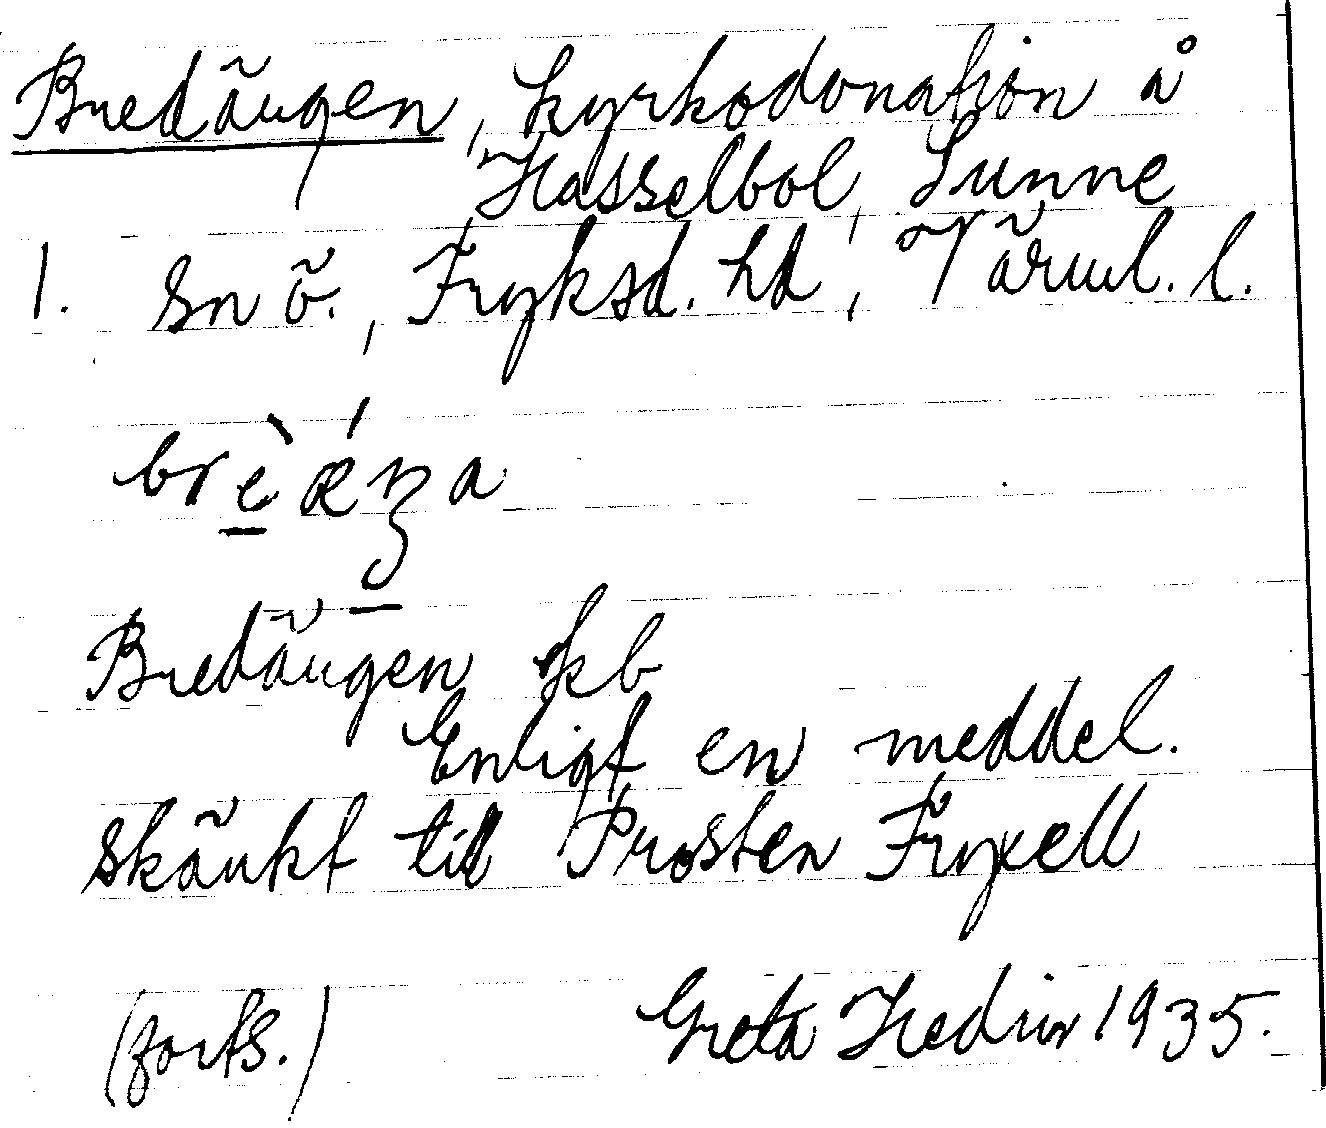 Bredängen, kyrkodonation å
Hasselbol, Sunne
1. sn ö., Fryksd. hd, Värml. l.
brèǽŋa
Bredängen kb
Enligt en meddel.
skänkt till Prosten Fryxell
(forts.) Greta Hedin 1935.